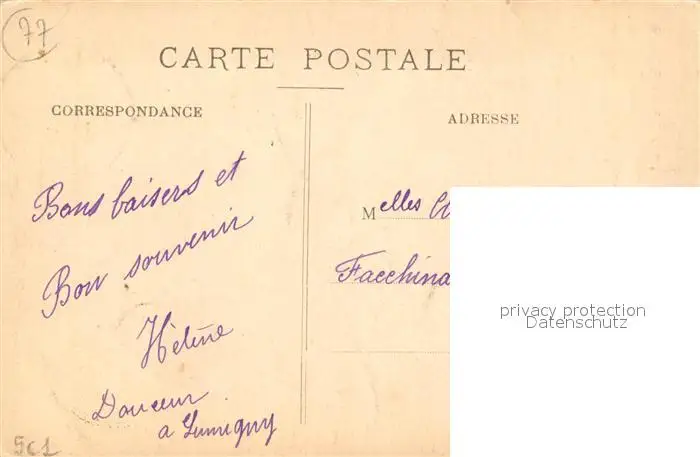 77
CARTE POSTALE
CORRESPONDANCE
ADRESSE
Bons baisers et
Bon souvenir
Hélène
Douceur
a Lumigny
Melles
Facchina
privacy protection
Datenschutz
5c1